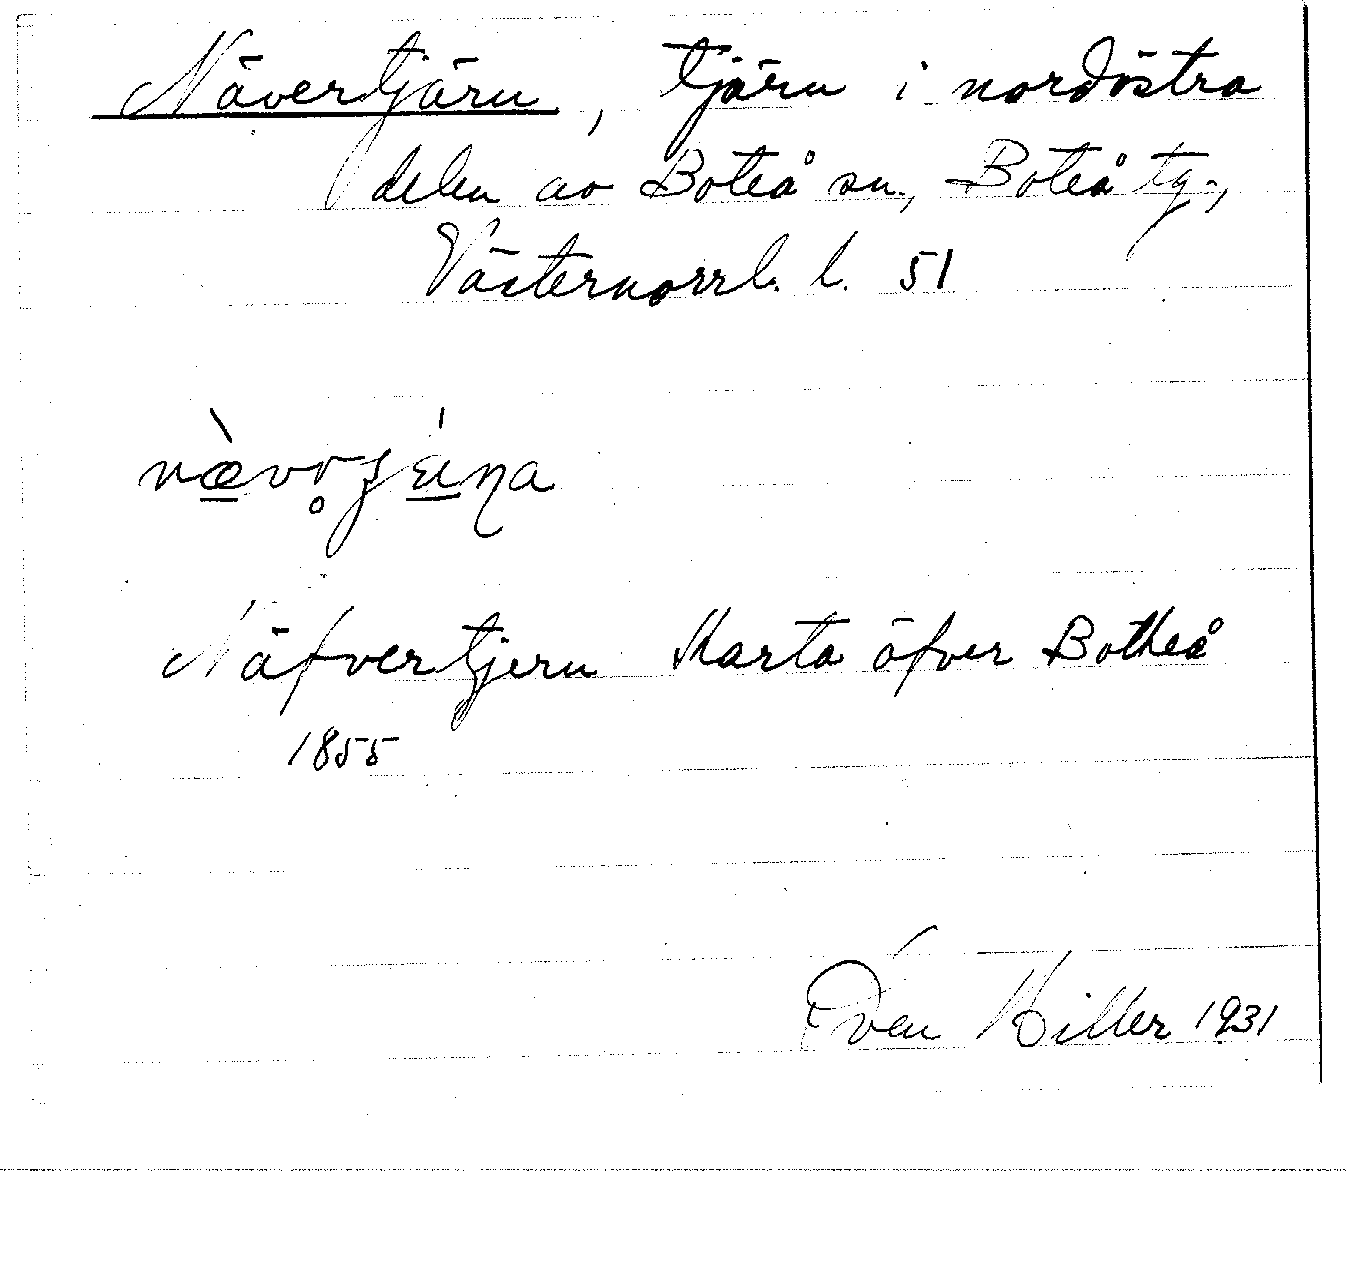 Nävertjärn, tjärn i nordöstra
delen av Boteå sn., Boteå tg.,
Västernorrl. l. 51
Näfvertjern Karta öfver Botheå
1855
Sven Hiller 1931